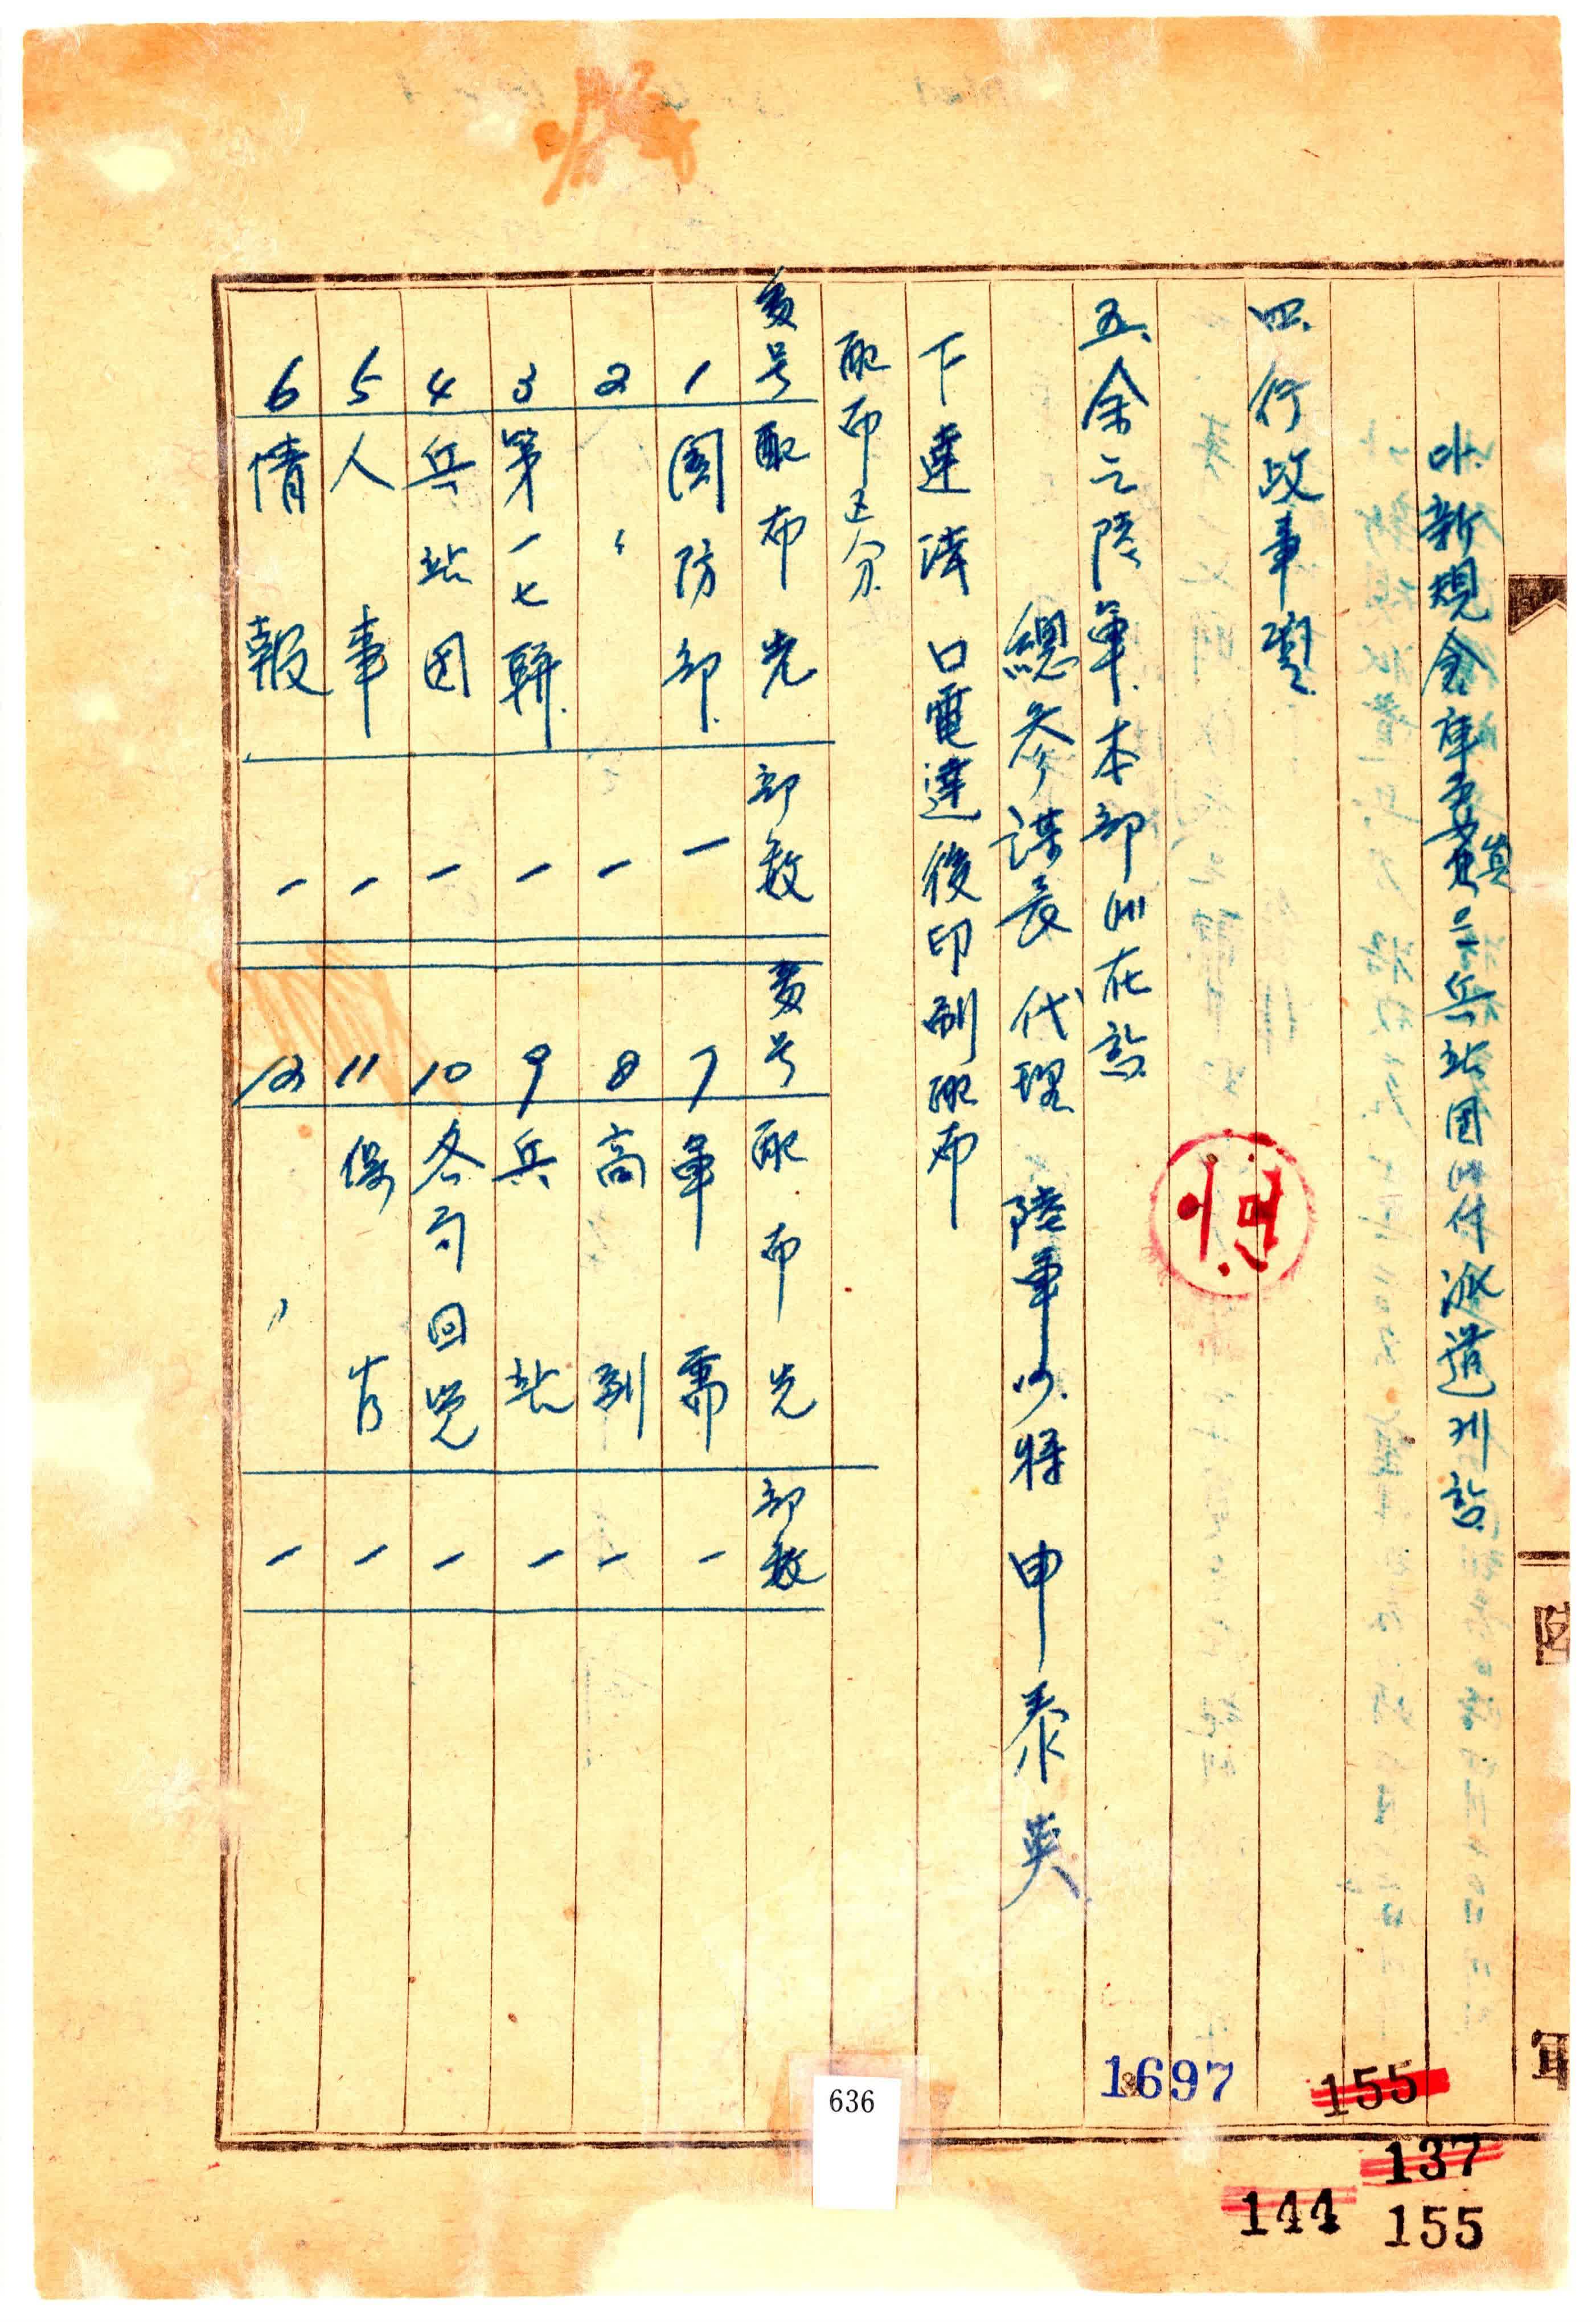 新規倉庫要員은兵站团에서派遣케함
四. 行政事項.
五. 余는陸軍本部에在함.
이면
總参謀長 代理 陸軍少将 申泰英
下達法 口電達後印刷配布
配布区分
番号 配布先 部数 番号 配布先 部数
1 國防部 一 7 軍需 一
2 〃 一 8 高副 一
3 第一七聯 一 9 兵站 一
4 兵站团 一 10 各局回覽 一
5 人事 一 11 保管 一
6 情報 一 12 〃 一
陸
軍
1697
155
636
137
144
155